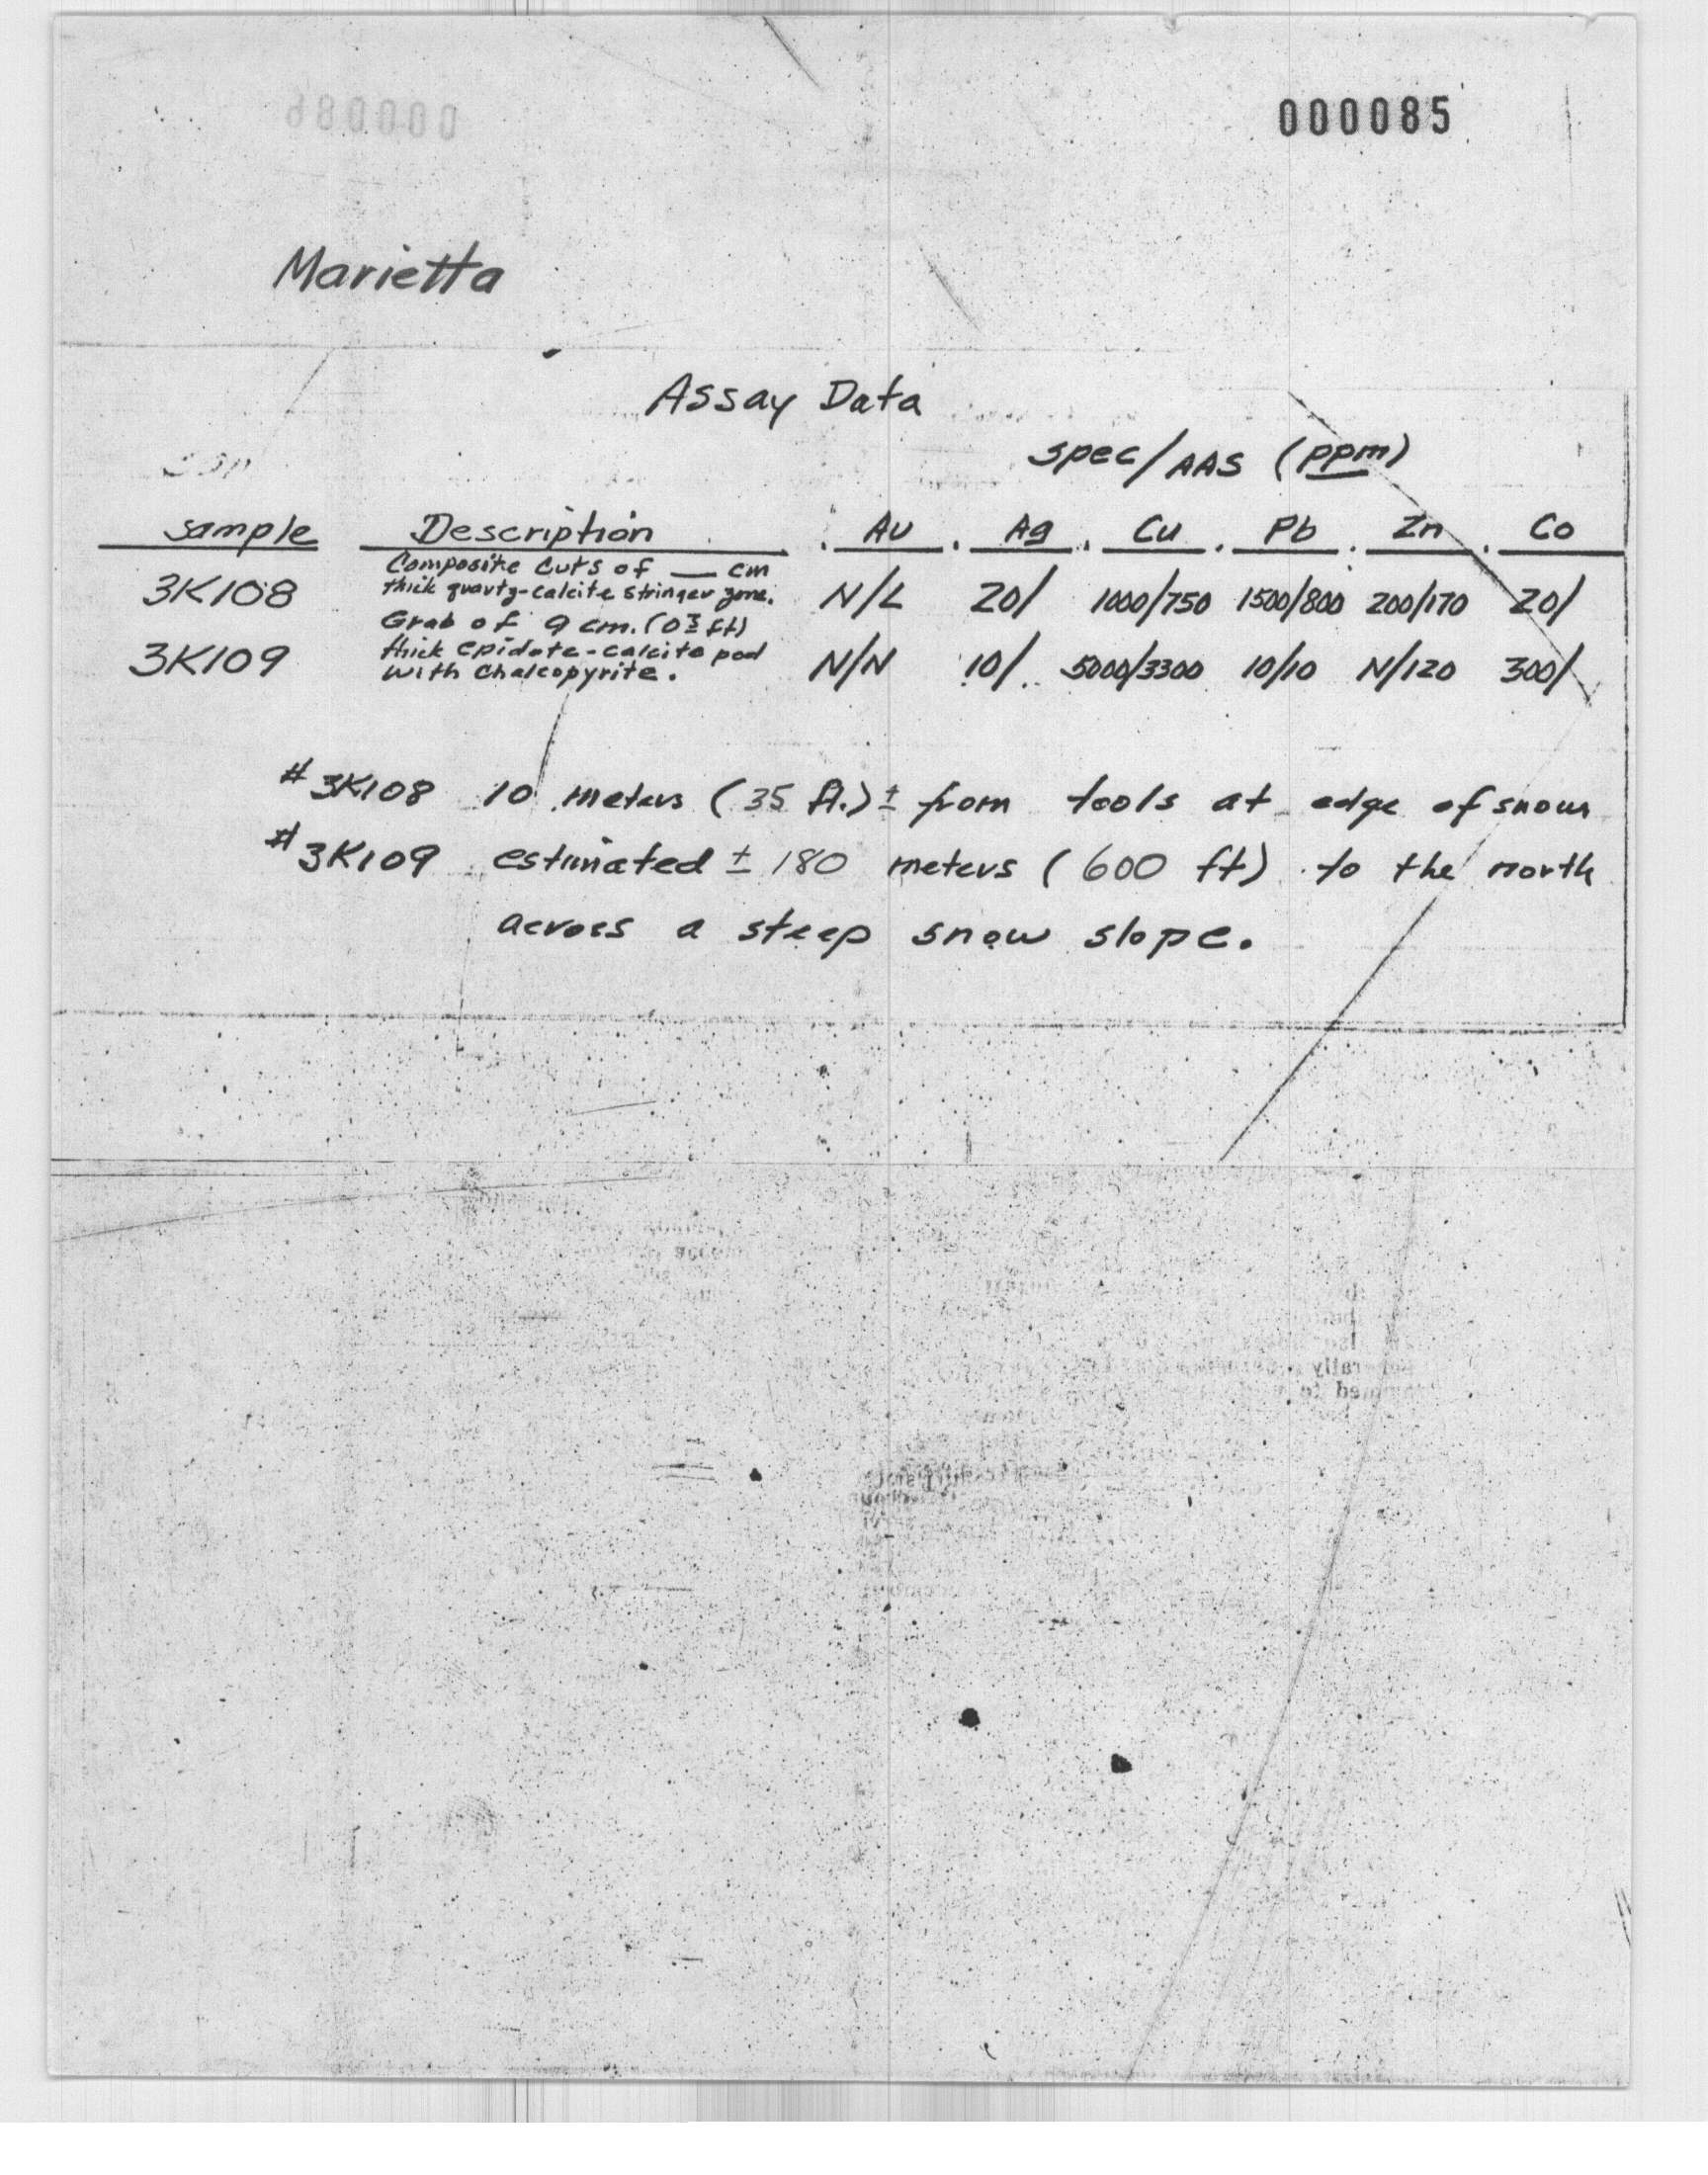 000085
Marietta
Assay Data
spec/AAS (ppm)
sample Description Au Ag Cu Pb Zn Co
Composite cuts of __ cm
3K108 thick quartz-calcite stringer zone. N/L 20/ 1000/750 1500/800 200/170 20/
Grab of 9 cm. (0.3 ft)
3K109 thick epidote-calcite pod N/N 10/ 5000/3300 10/10 N/120 300/
with chalcopyrite.
#3K108 10 meters (35 ft.) ± from tools at edge of snow
#3K109 estimated ± 180 meters (600 ft) to the north
across a steep snow slope.